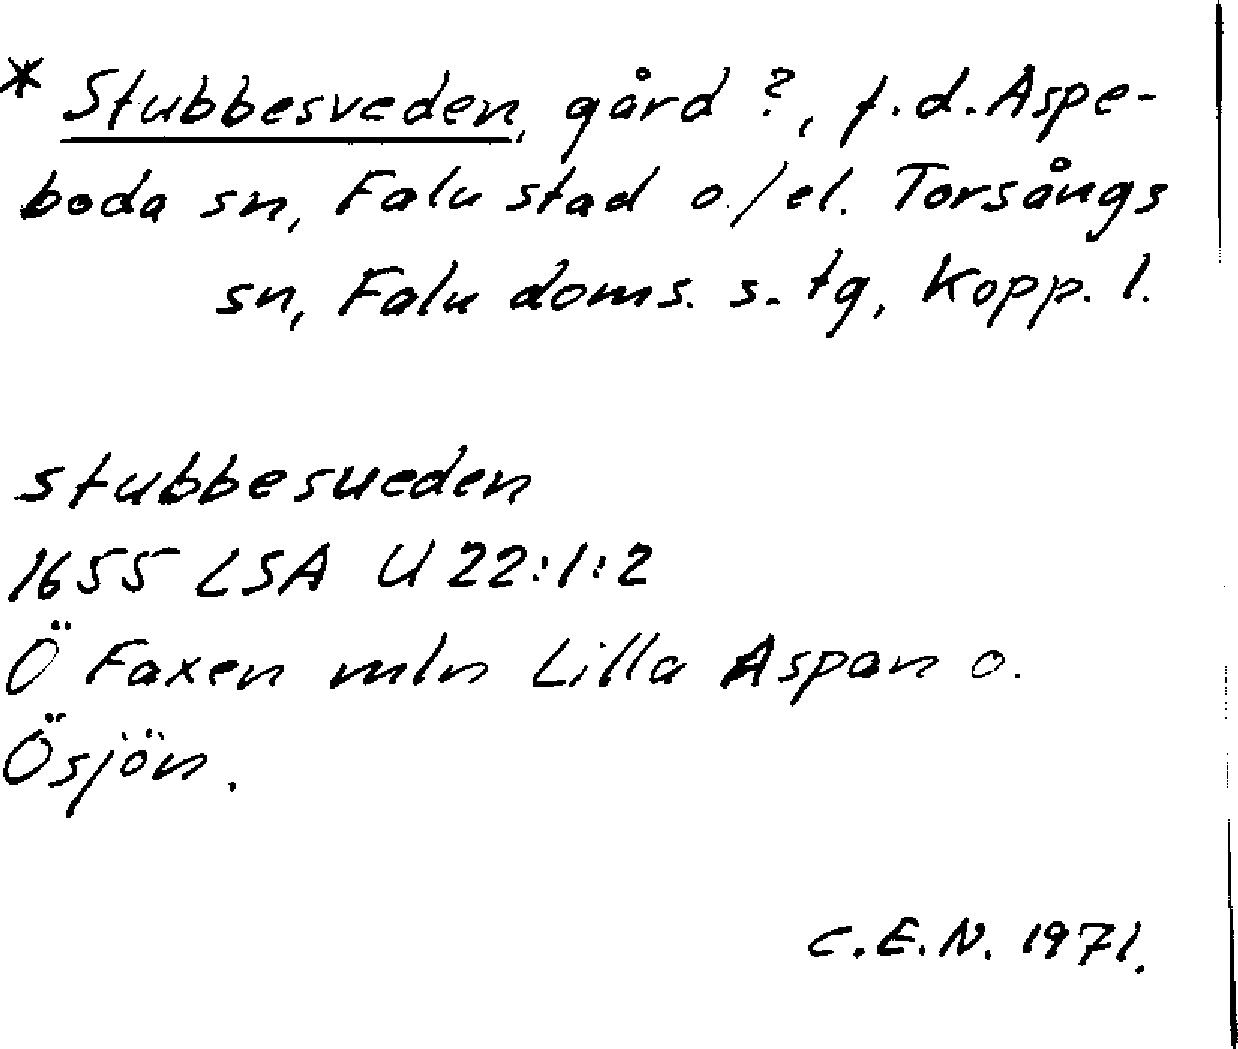 * Stubbesveden, gård?, f.d. Aspe-
boda sn, Falu stad o./el. Torsångs
sn, Falu doms. s. tg, Kopp. l.
stubbesueden
1655 LSA U 22:1:2
Ö Faxen mln Lilla Aspan o.
Ösjön.
C.E.N. 1971.